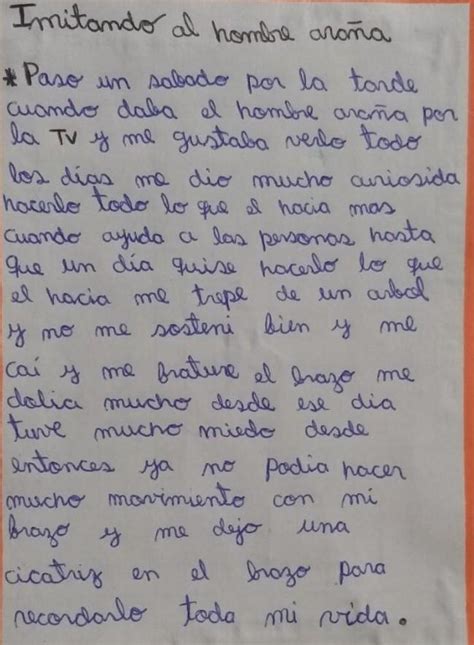 Imitando al hombre araña
*Paso un sabado por la tarde
cuando daba el hombre araña por
la TV y me gustaba verlo todo
los días me dio mucho curiosida
hacerlo todo lo que el hacia mas
cuando ayuda a las personas hasta
que un día quise hacerlo lo que
el hacia me trepe de un arbol
y no me sosteni bien y me
caí y me frature el brazo me
dolia mucho desde ese dia
tuve mucho miedo desde
entonces ya no podia hacer
mucho movimiento con mi
brazo y me dejo una
cicatriz en el brazo para
recordarlo toda mi vida.